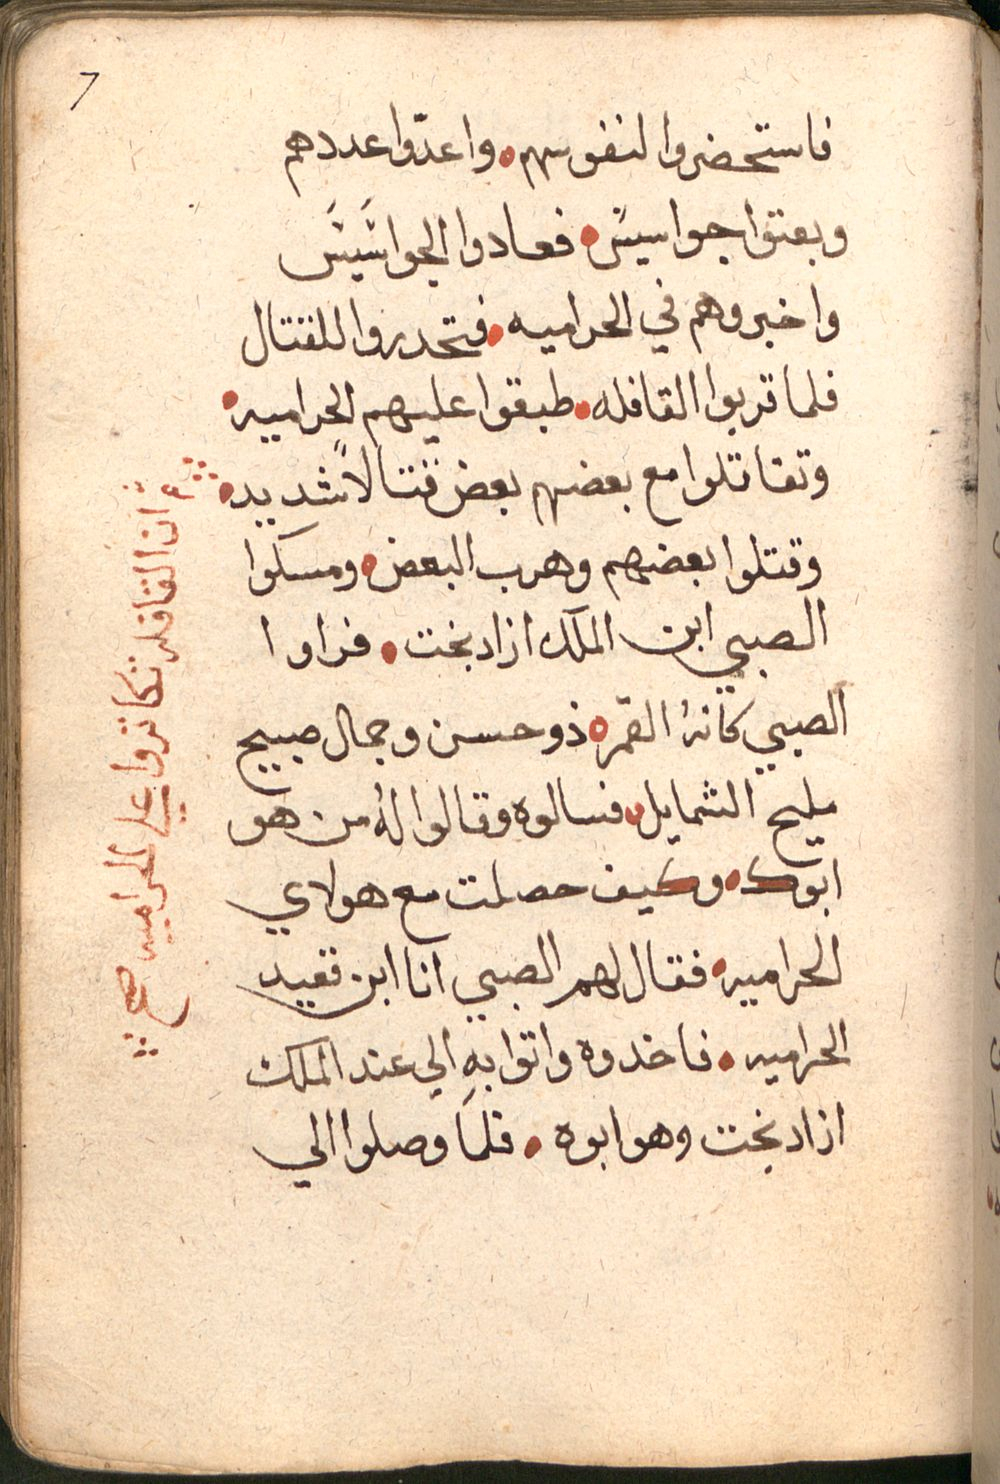 7
فاستحضروا لنفوسهم . واعدّوا عددهم
وبعتوا جواسيس . فعادوا الجواشيش
واخبروهم في الحراميه . فتحدروا للقتتال
فلما قربوا القافله . طبقوا عليهم الحراميه .
وتقاتلوا مع بعضهم بعض قتتالاً شديد .
وقتلوا بعضهم وهرب البعض . ومسكوا
الصبي ابن الملك ازادبخت . فراوا
الصبي كانهُ القمر . ذو حسن وجمال صبيح
مليح الشمايل . فسالوه وقالوا لهُ من هو
ابوك . وكيف حصلت مع هولاي
الحراميه . فقال لهم الصبي انا ابن نقيد
الحراميه . فاخدوه واتوا بهِ الي عند الملك
ازادبخت وهو ابوه . فلما وصلوا الي
ان القافله تكاتروا علي الحراميه صح